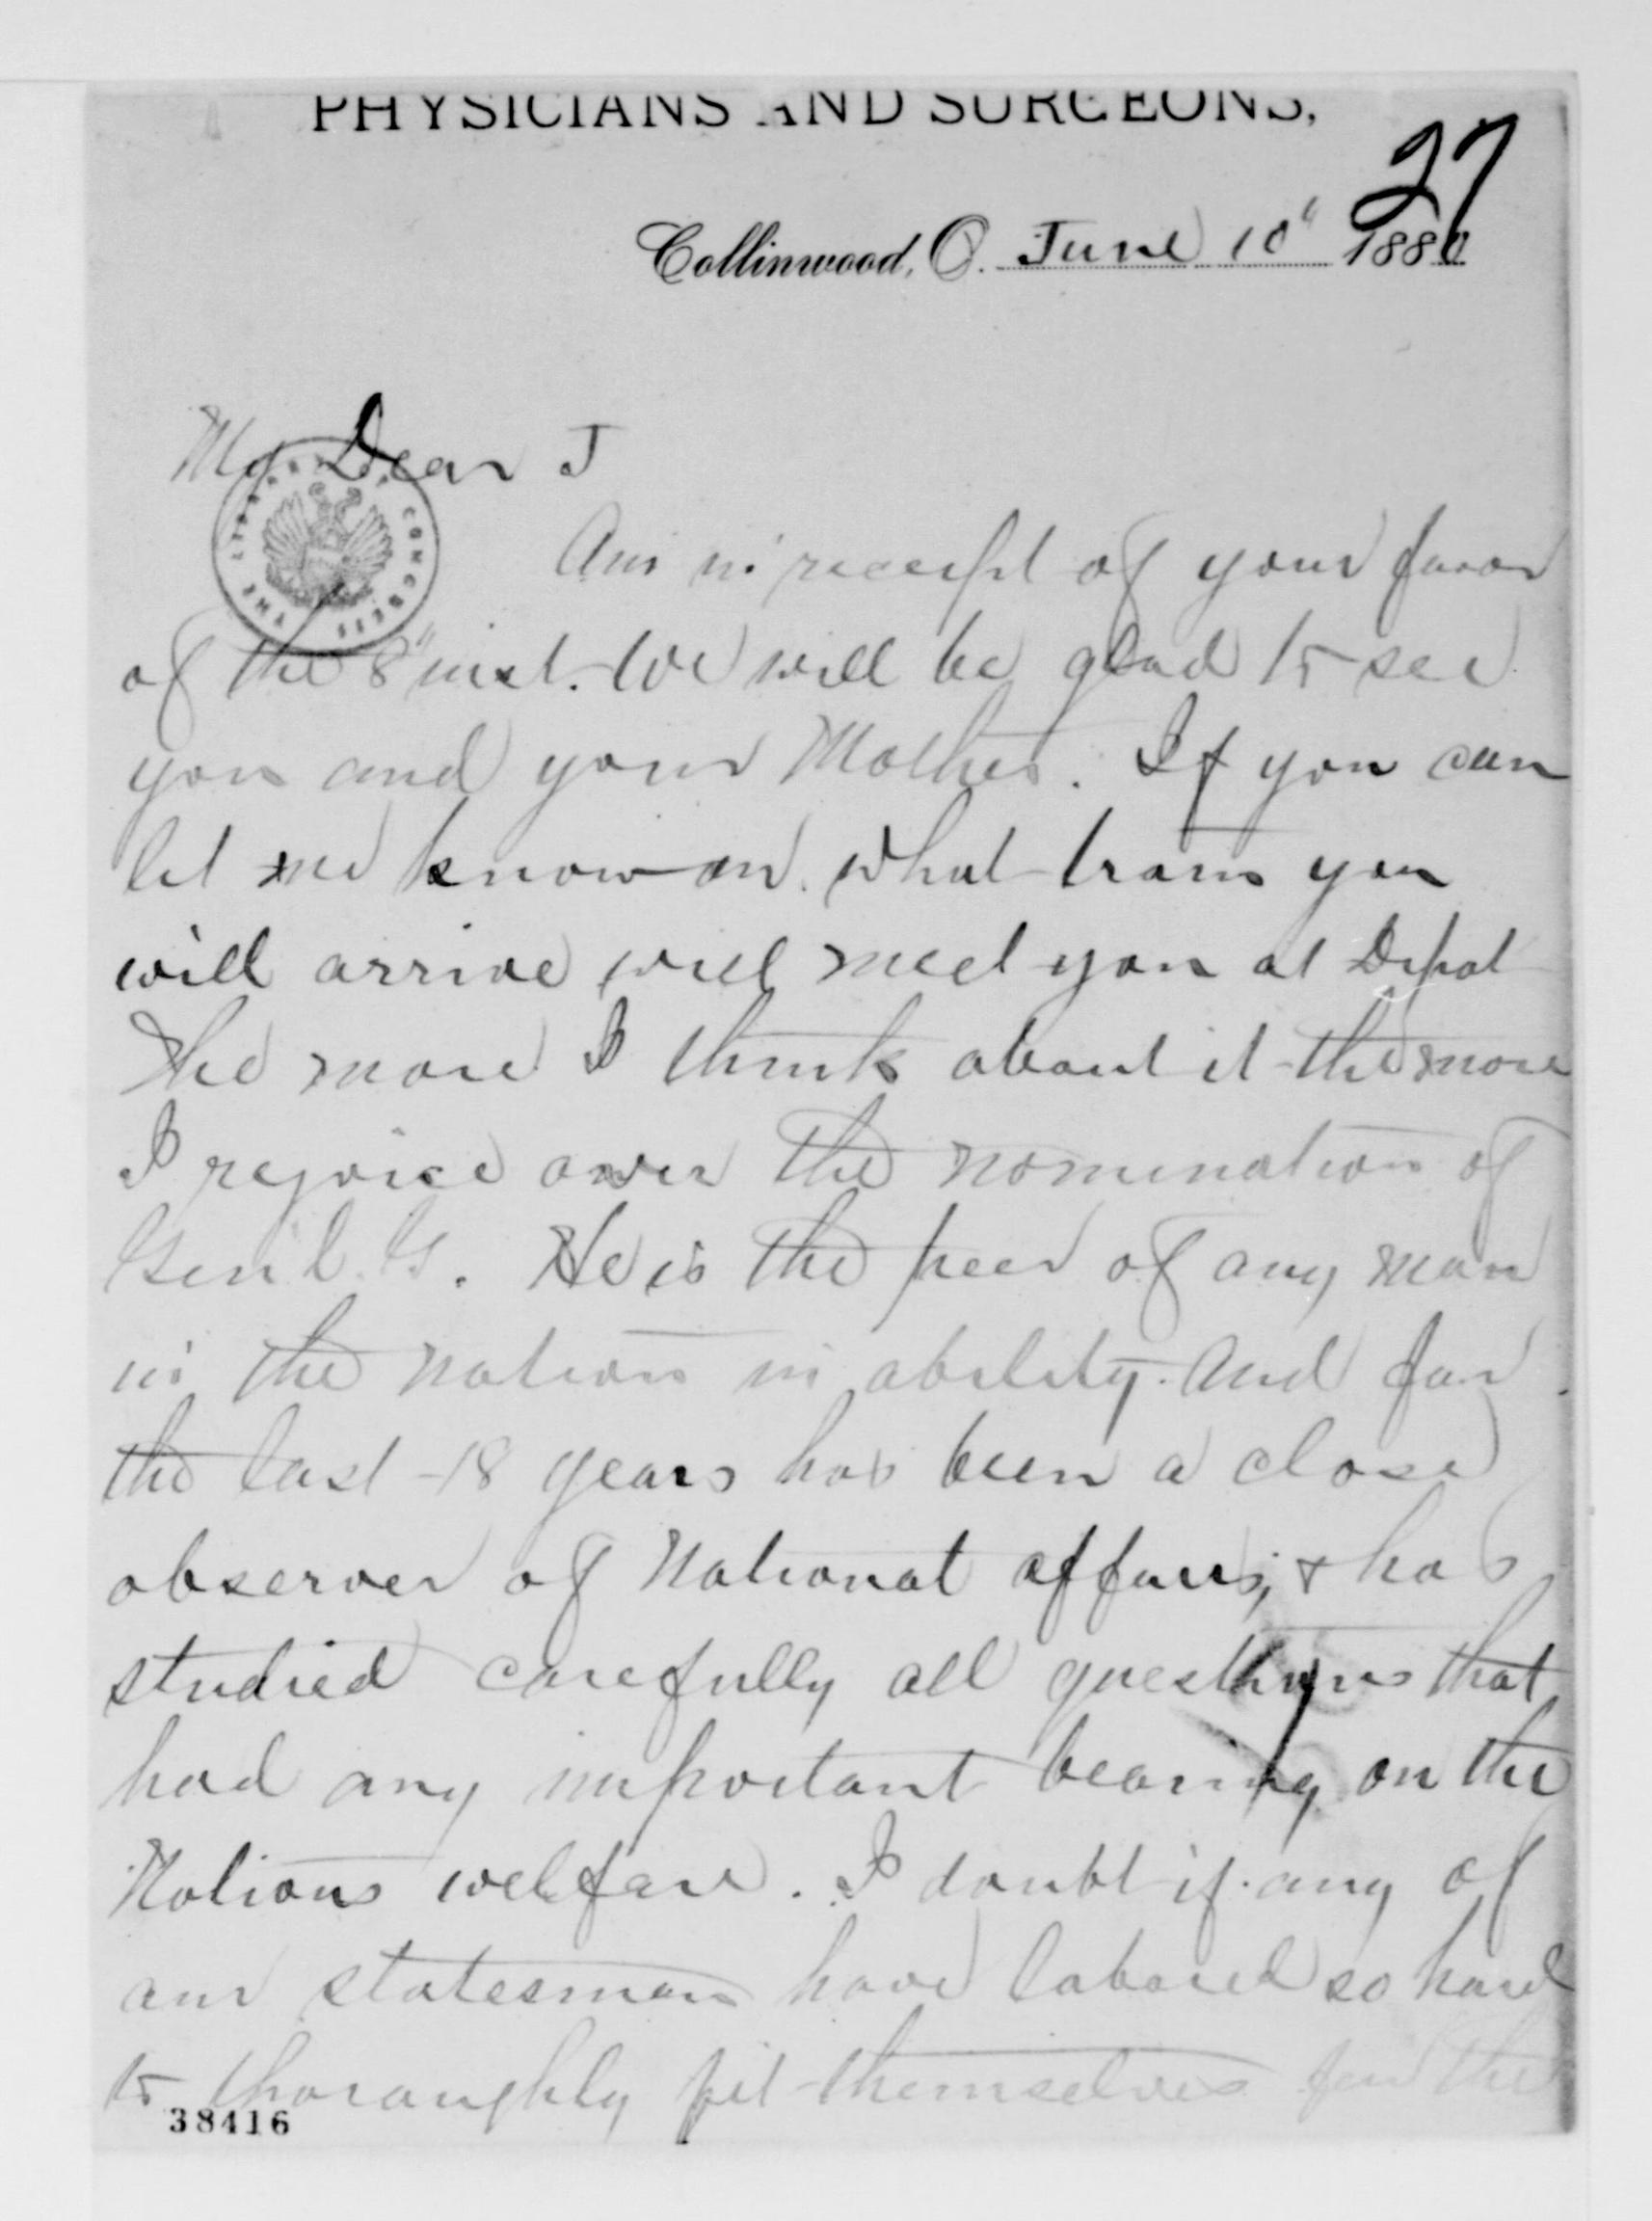 PHYSICIANS AND SURGEONS,
27
Collinwood, O. June 10" 1880
My Dear J
Am in receipt of your favor
of the 8" inst. We will be glad to see
you and your Mother. If you can
let me know on what train you
will arrive will meet you at Depot
The more I think about it the more
I rejoice over the nomination of
Gen'l G. He is the peer of any man
in the nation in ability. And for
the last 18 years has been a close
observer of National affairs, & has
studied carefully all questions that
had any important bearing on the
Nations welfare. I doubt if any of
our statesman have labored so hard
to thoroughly fit themselves for the
38416
THE LIBRARY OF CONGRESS